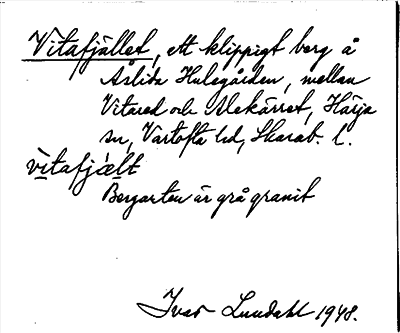 Vitafjället, ett klippigt berg å
Åslida Hulegården, mellan
Vitared och Alekärret, Härja
sn, Vartofta hd, Skarab. l.
vitafjælt
Bergarten är grå granit
Ivar Lundahl 1948.